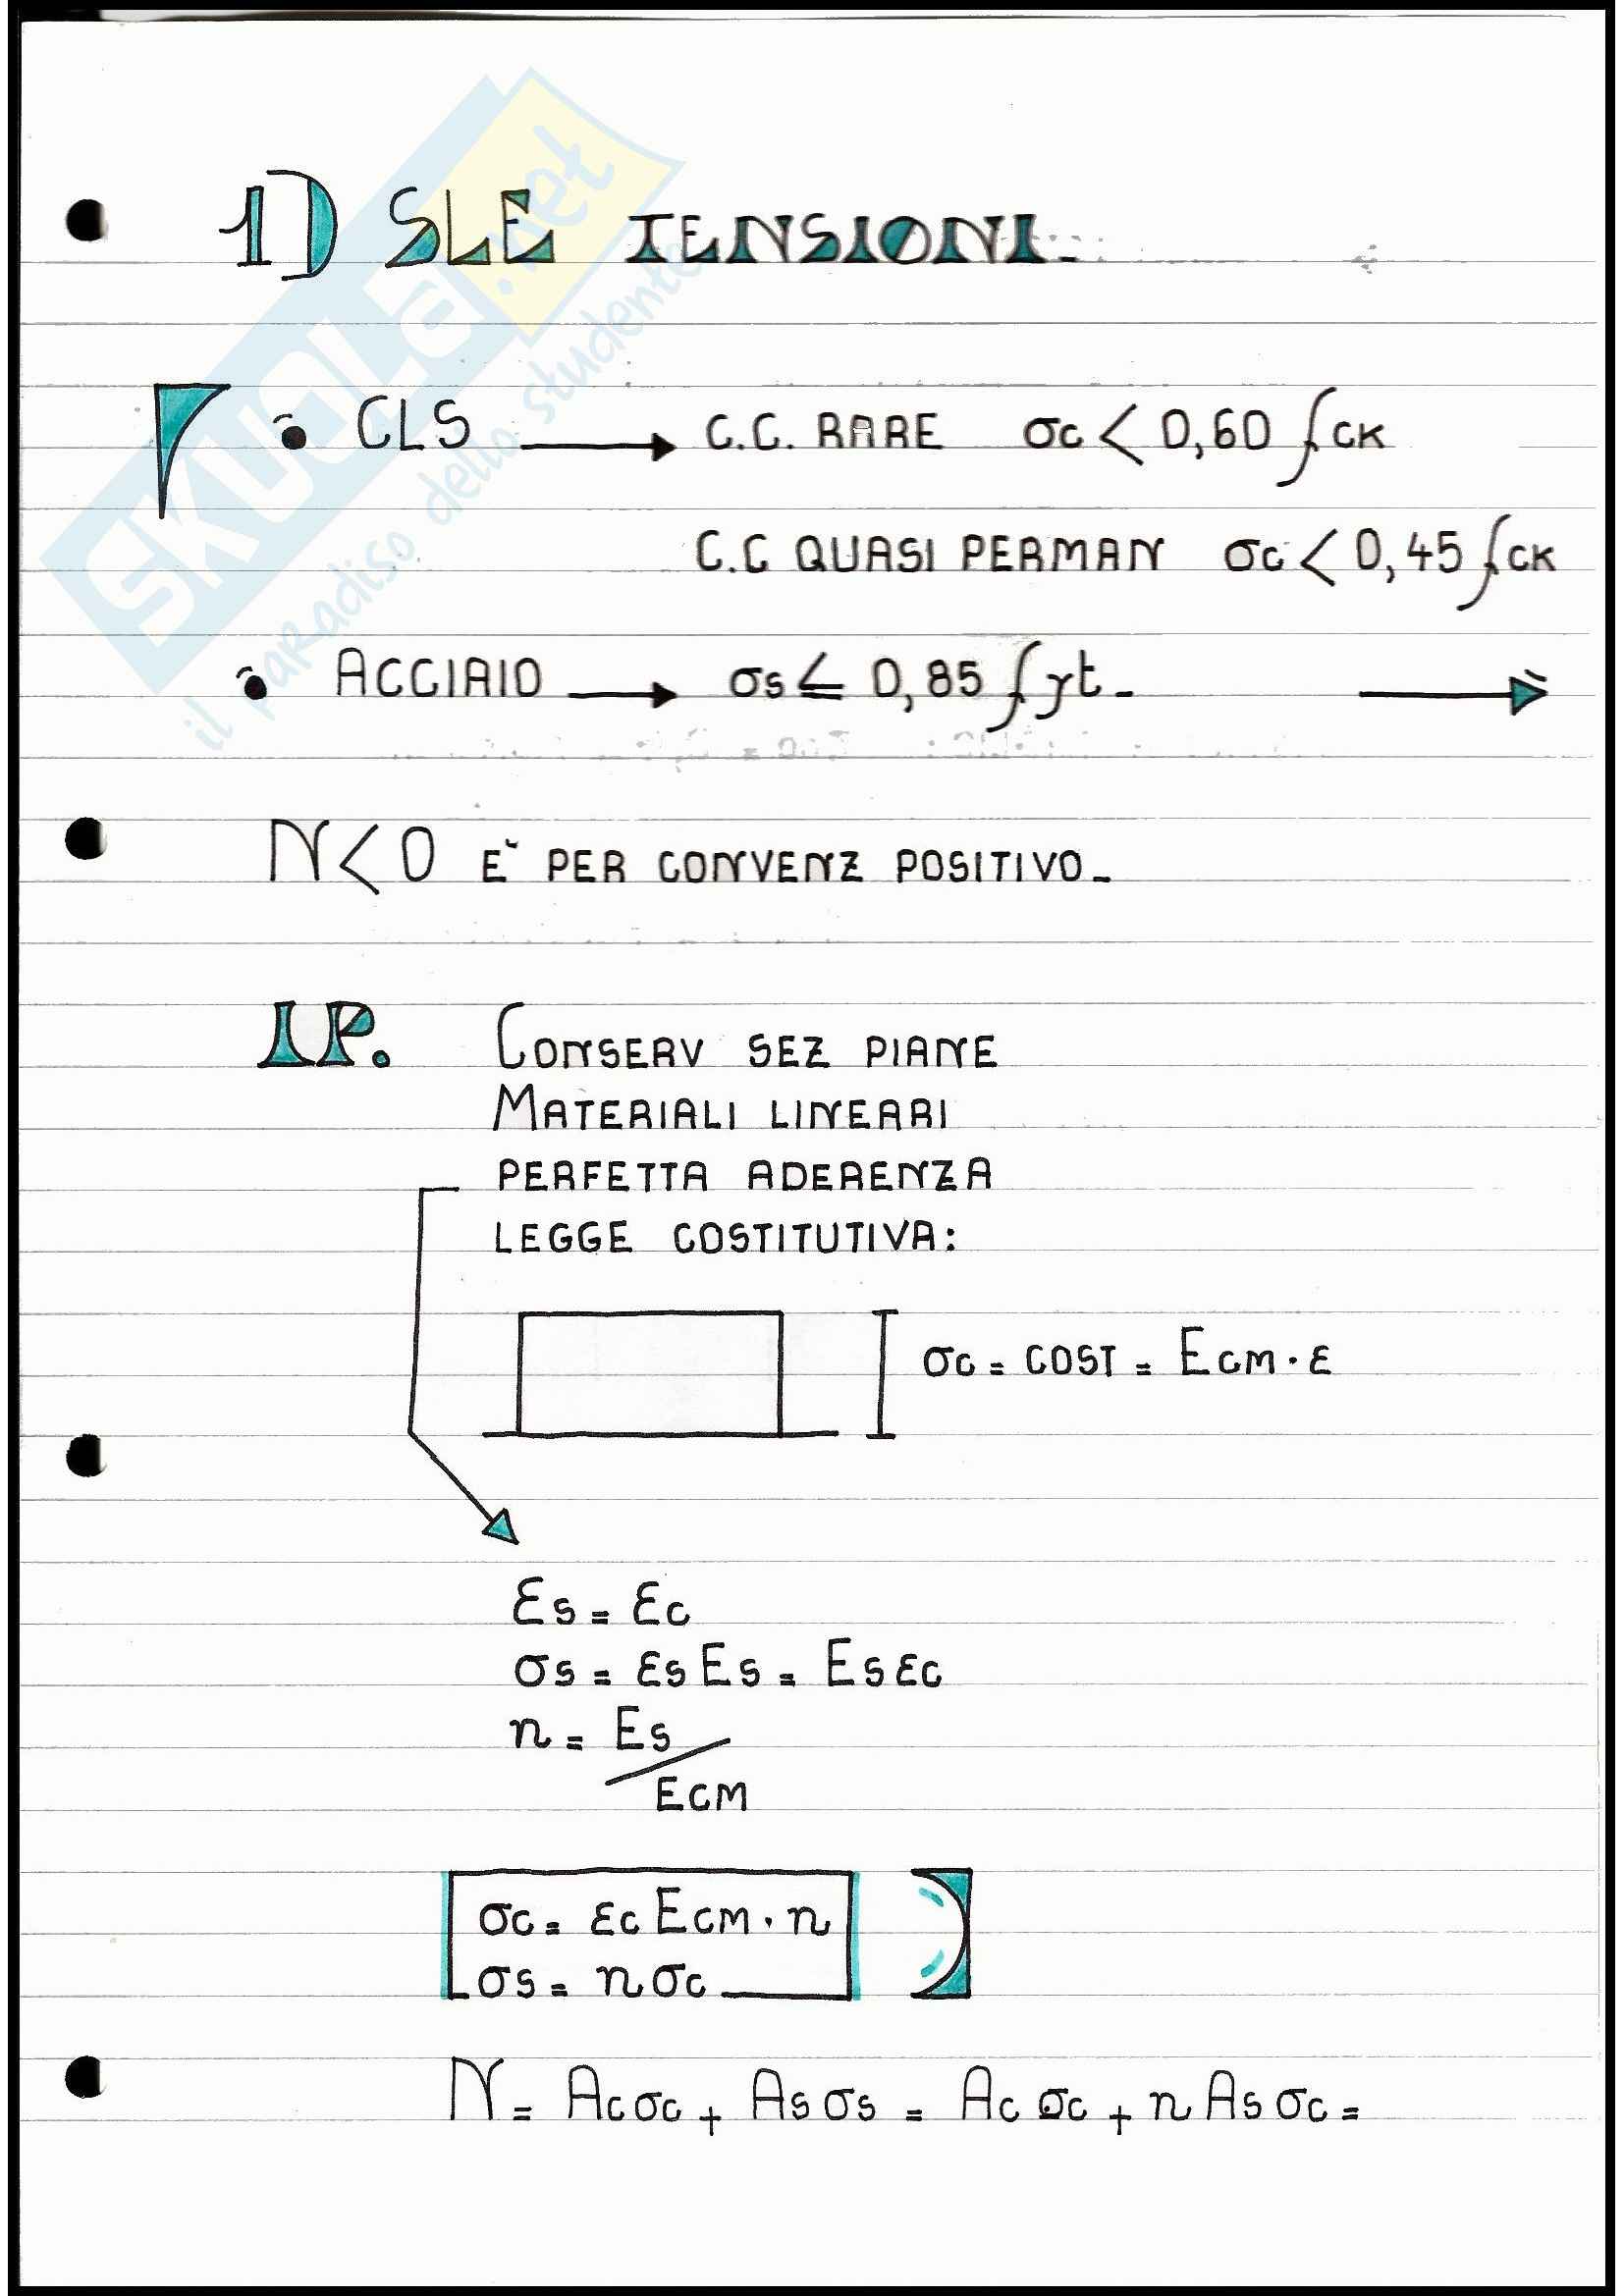 SKUOLA.net
il paradiso dello studente
1) SLE TENSIONI.
• CLS → C.C. RARE σc < 0,60 fck
C.C QUASI PERMAN σc < 0,45 fck
• ACCIAIO → σs ≤ 0,85 fyt.
N<0 E' PER CONVENZ POSITIVO.
IP. CONSERV SEZ PIANE
MATERIALI LINEARI
PERFETTA ADERENZA
LEGGE COSTITUTIVA:
σc = COST = Ecm · ε
εs = εc
σs = εs Es = Es εc
n = Es / Ecm
σc = εc Ecm · n
σs = n σc
N = Ac σc + As σs = Ac σc + n As σc =